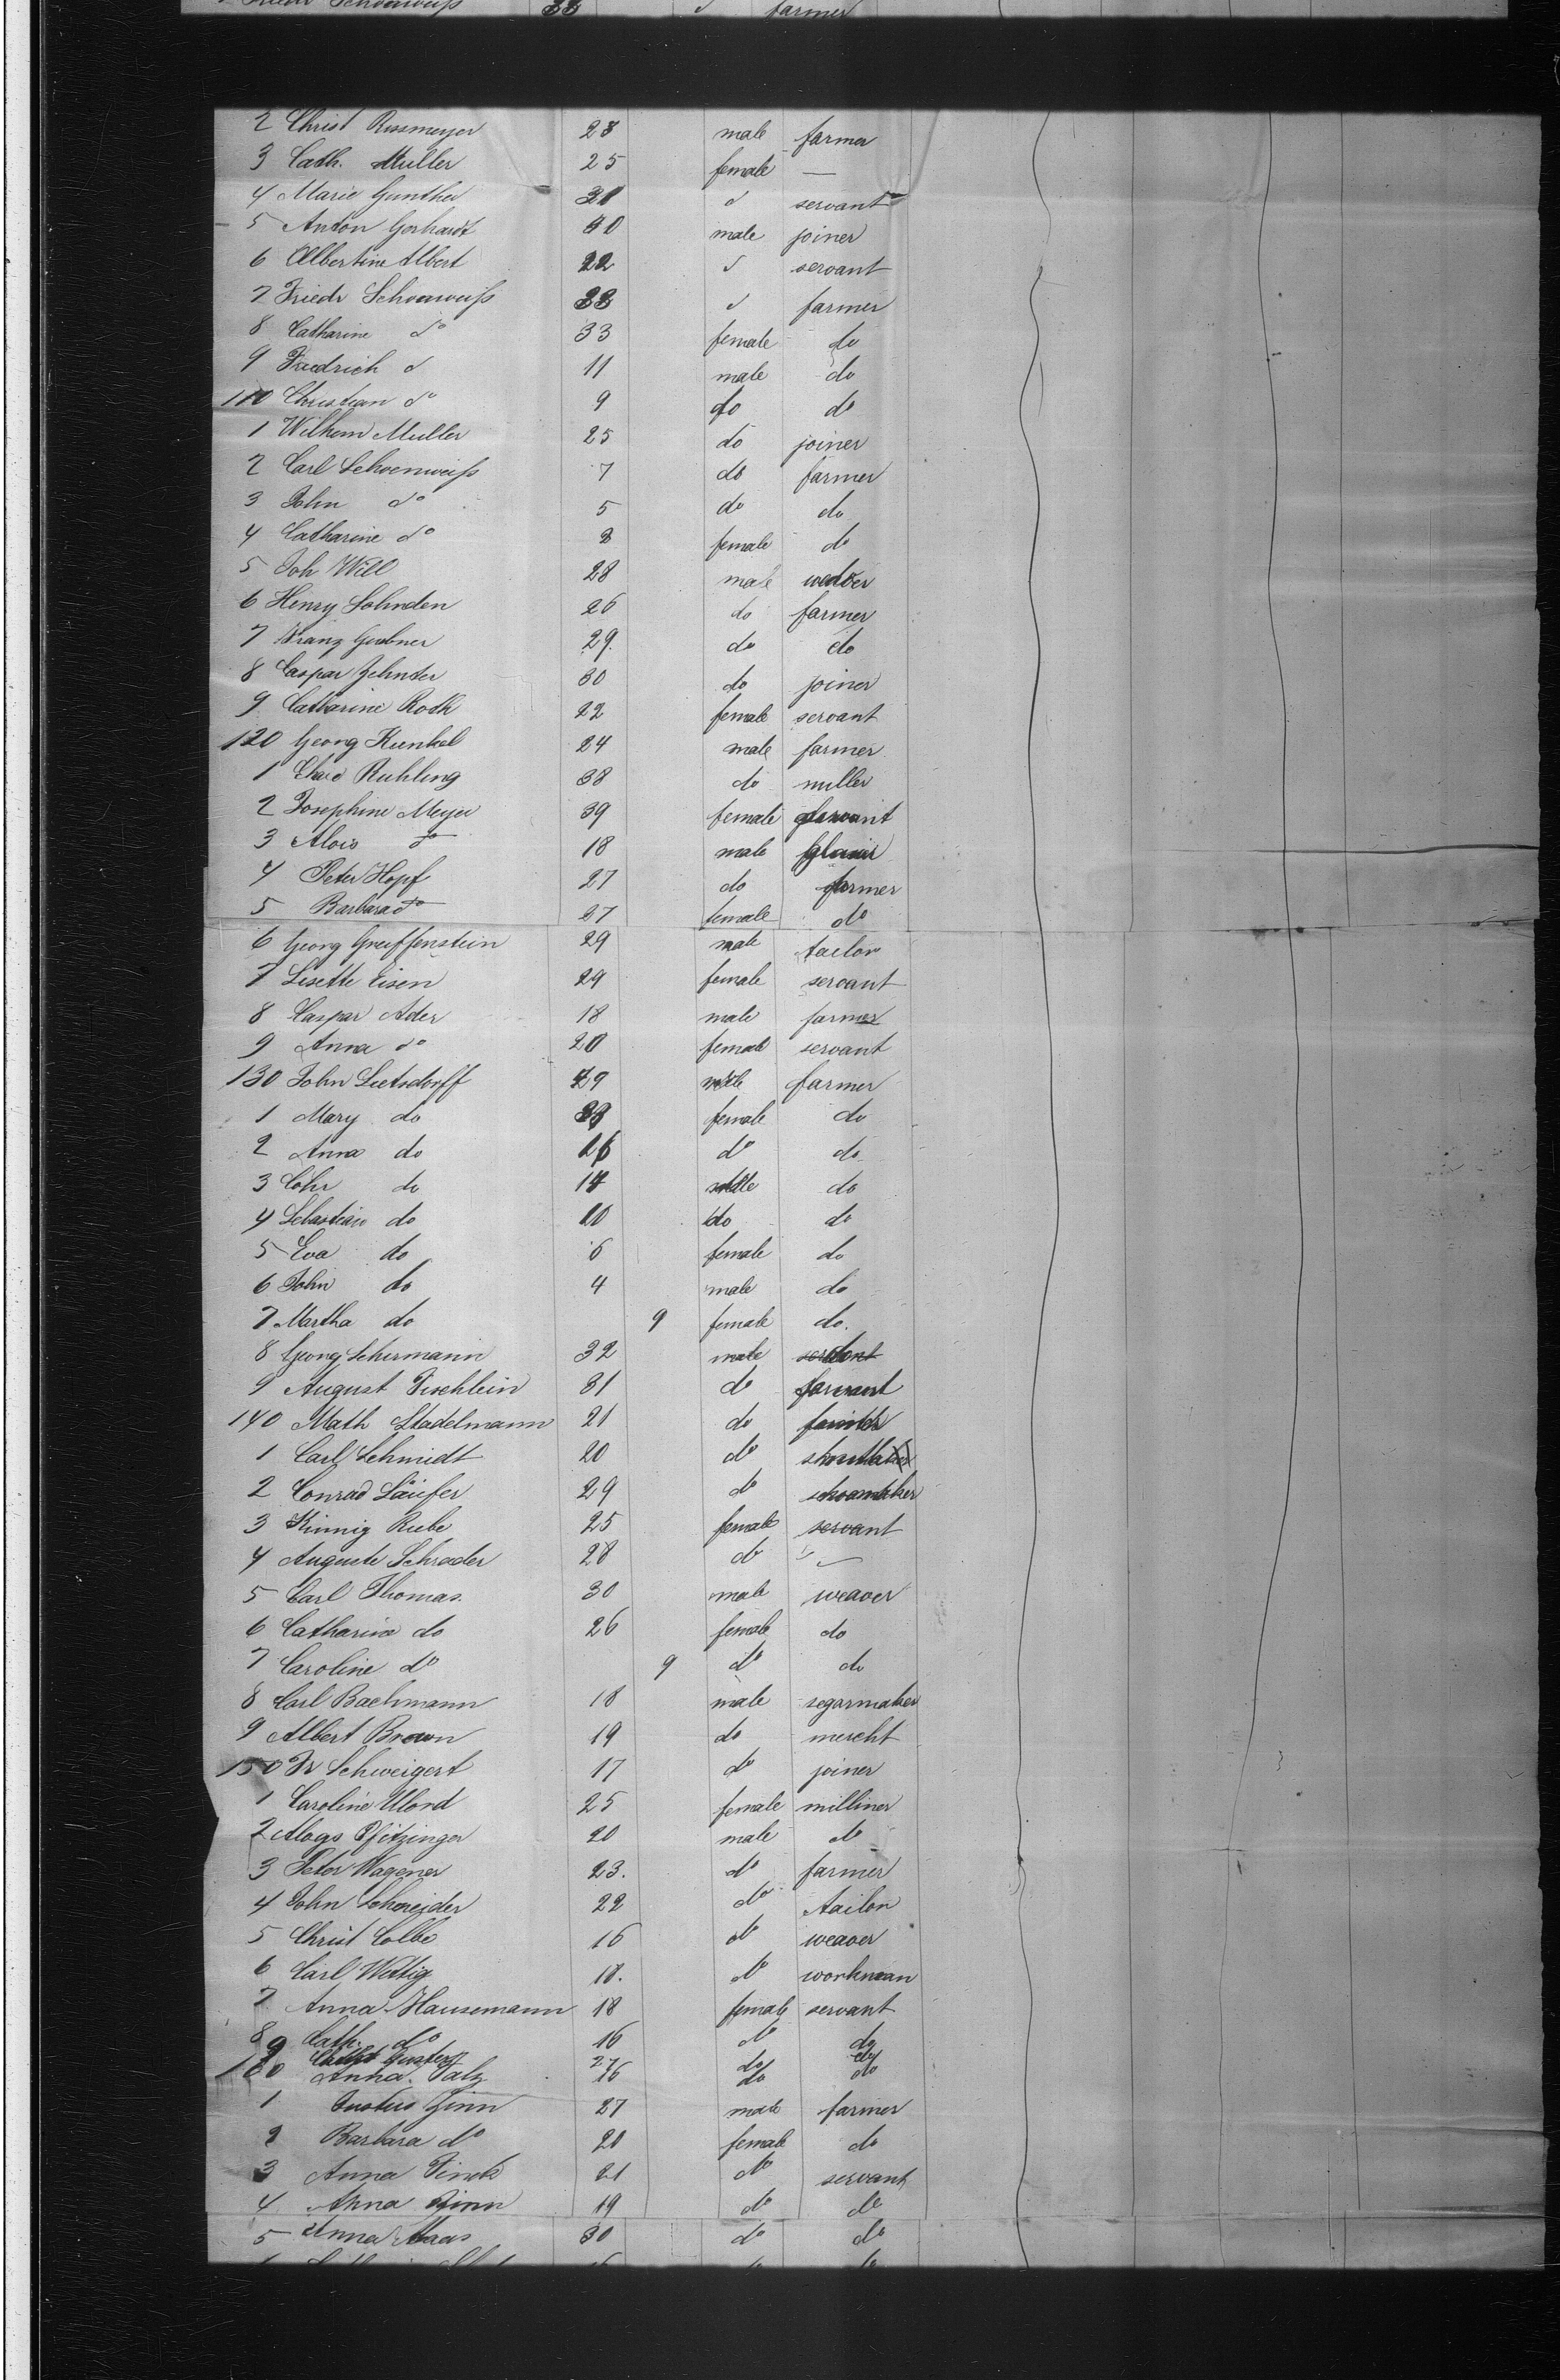 Friedr Schoenweiß 33 d farmer
2 Christ Rusmeyer 28 male farmer
3 Cath. Muller 25 female —
4 Marie Gunther d servant
5 Anton Gerhardt male joiner
6 Albertine Albert 22 d servant
7 Friedr Schoenweiß 33 d farmer
8 Catharine do 33 female do
9 Friedrich d 11 male do
110 Christian do 9 do do
1 Wilhem Muller 25 do joiner
2 Carl Schoenweiß 7 do farmer
3 John do 5 do do
4 Catharine do female do
5 Joh Will 28 male weaver
6 Henry Sohnden 26 do farmer
7 Franz Guebner 29. do do
8 Caspar Zehnter 30 do joiner
9 Catharine Roth 22 female servant
120 Georg Kunkel 24 male farmer
1 Ruhling 38 do miller
2 Josephine Meyer 39 female servant
3 Alois do 18 male
4 Peter Hopf 27 do farmer
5 Barbara do 27 female do
6 Georg Greiffenstein 29 male tailor
7 Lisette Eisen 29 female servant
8 Caspar Ader 18 male farmer
9 Anna do 20 female servant
130 John Lutsdorff male farmer
1 Mary do female do
2 Anna do do do
3 do male do
4 Sebastian do 10 do do
5 Eva do 6 female do
6 John do 4 male do
7 Martha do 9 female do.
8 Georg Schirmann 32 male
9 August Fischlein 31 do
140 Math Stadelmann 21 do
1 Carl Schmidt 20 do
2 Conrad Läufer 29 do schoamaker
3 Kinnig Rube 25 female servant
4 Auguste Schrader 28 do
5 Carl Thomas. 30 male weaver
6 Catharine do 26 female do
7 Caroline do 9 do do
8 Carl Bachmann 18 male segarmaker
9 Albert Brown 19 do mercht
150 Fr Schweigert 17 do joiner
1 Caroline Ulord 25 female milliner
2 Aloys Pfitzinger 20 male do
3 Peter Wagener 23. do farmer
4 John Schneider 22 do tailor
5 Christ Colbe 16 do weaver
6 Carl Wittig 18. do workman
7 Anna Hausemann 18 female servant
8 Cath. do 16 do do
9 27 do do
160 Anna Salz 16 do do
1 Justus Zinn 27 male farmer
2 Barbara do 20 female do
3 Anna Finck 21 do servant
4 Anna Zinn 19 do do
5 Anna Maas 30 do do